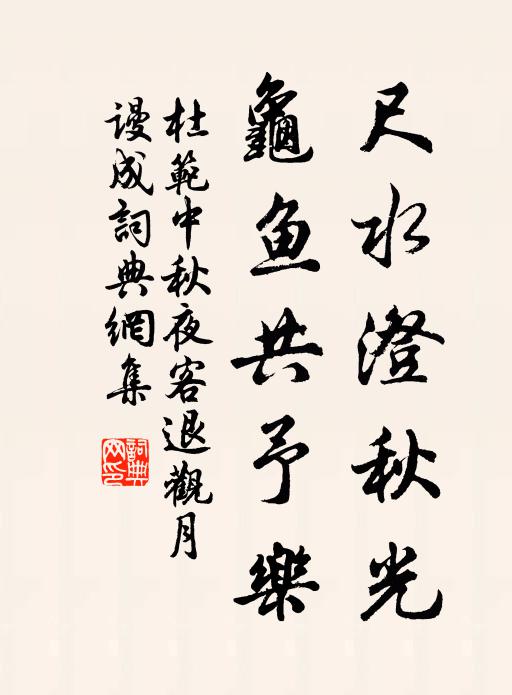 尺水澄秋光
龜鱼共予樂
杜範中秋夜客退觀月
谩成詞典網集
詞典网印